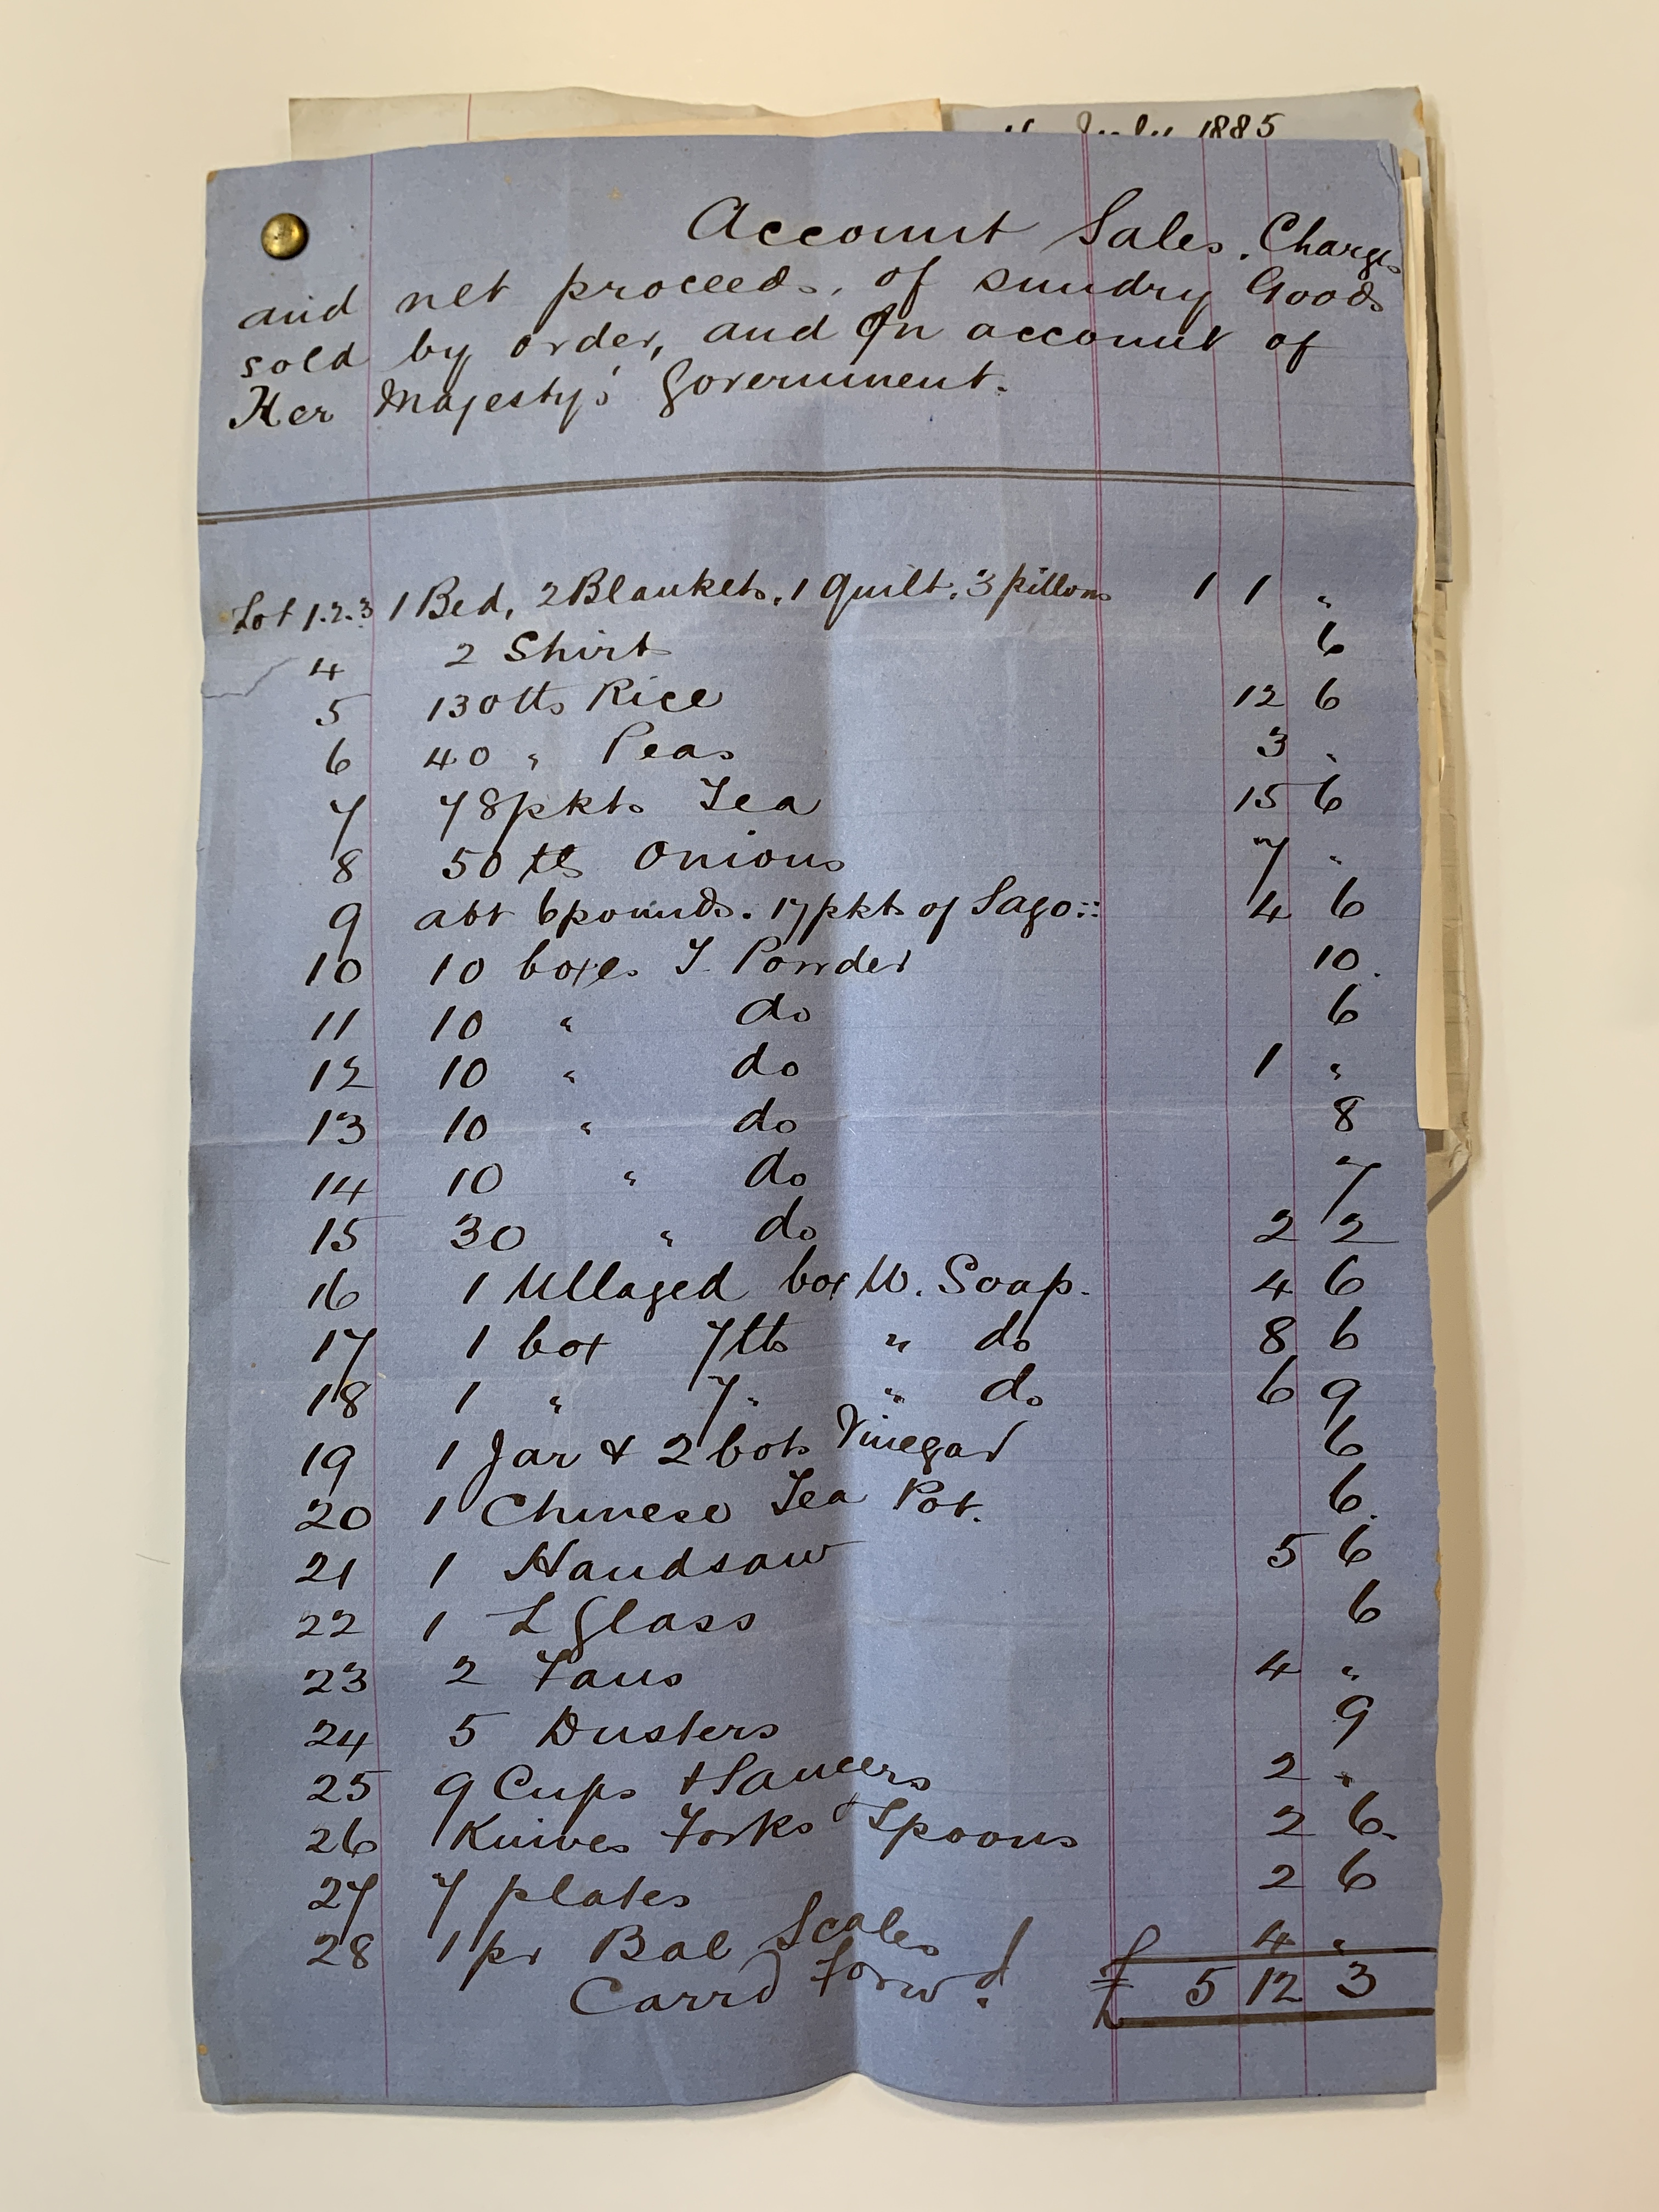 July 1885
Account Sales. Charges
and net proceeds, of sundry Goods
sold by order, and On account of
Her Majesty's Government.
Lot 1.2.3 1 Bed, 2 Blankets, 1 Quilt, 3 pillows 1 1 "
4 2 Shirts 6
5 130 lbs Rice 12 6
6 40 " Peas 3 "
7 78 pkts Tea 15 6
8 50 lbs Onions 7 "
9 abt 6 pounds. 17 pkts of Sago :: 4 6
10 10 boxes T. Powder 10.
11 10 " do 6
12 10 " do 1 "
13 10 " do 8
14 10 " do 7
15 30 " do 2 2
16 1 Ullaged box W. Soap. 4 6
17 1 box 7 lbs " do 8 6
18 1 " 7 " " do 6 9
19 1 Jar & 2 bots Vinegar 6
20 1 Chinese Tea Pot. 6.
21 1 Handsaw 5 6
22 1 L Glass 6
23 2 Fans 4 "
24 5 Dusters 9
25 9 Cups & Saucers 2 "
26 Knives Forks & Spoons 2 6.
27 7 plates 2 6
28 1 pr Bal Scales 4 "
Carrd Forwd. £ 5 12 3